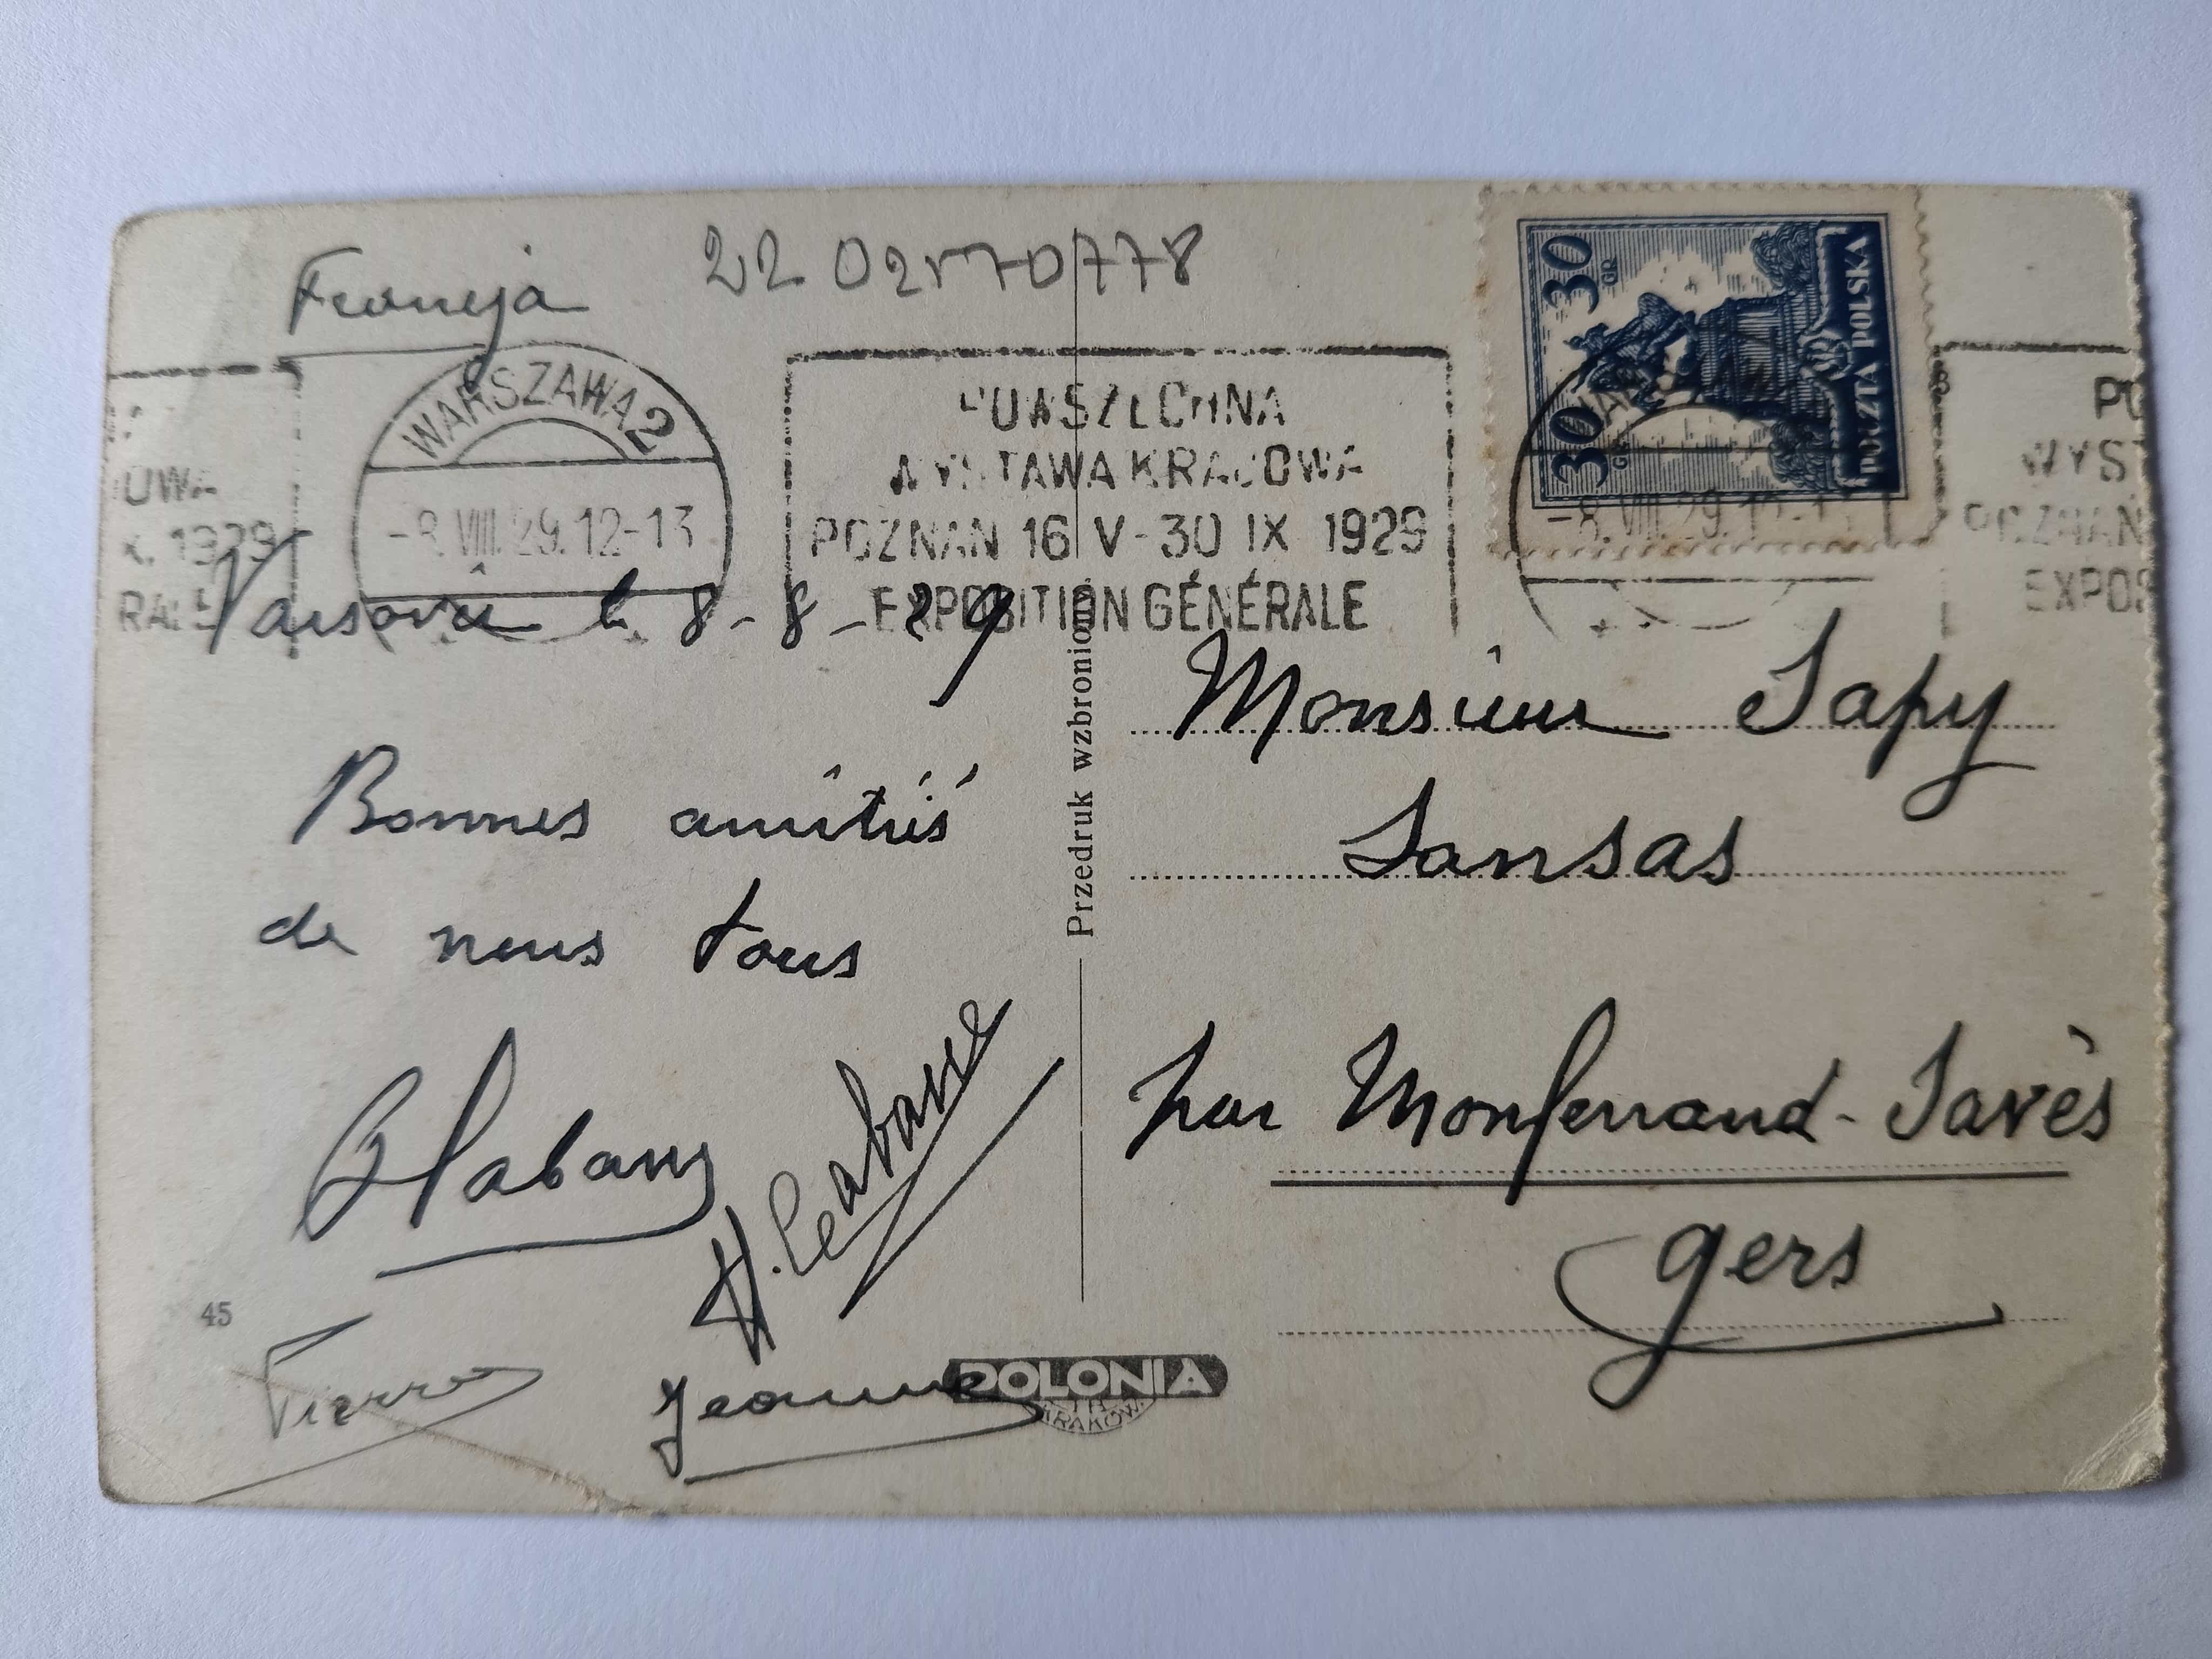 Francja
22 02170778
WARSZAWA 2
-8.VIII.29.12-13
POWSZECHNA
WYSTAWA KRAJOWA
POZNAN 16 V-30 IX 1929
EXPOSITION GÉNÉRALE
30 GR 30 GR
POCZTA POLSKA
-8.VIII.29.12-13
OWA
X. 1929
RALE
PO
WYST
POZNAN
EXPOS
Varsovie le 8-8-29
Bonnes amitiés
de nous tous
H. Labarre
Pierre
Jeanne
Monsieur Sapy
Sansas
par Monferrand-Savès
Gers
Przedruk wzbroniony
45
POLONIA
KRAKÓW